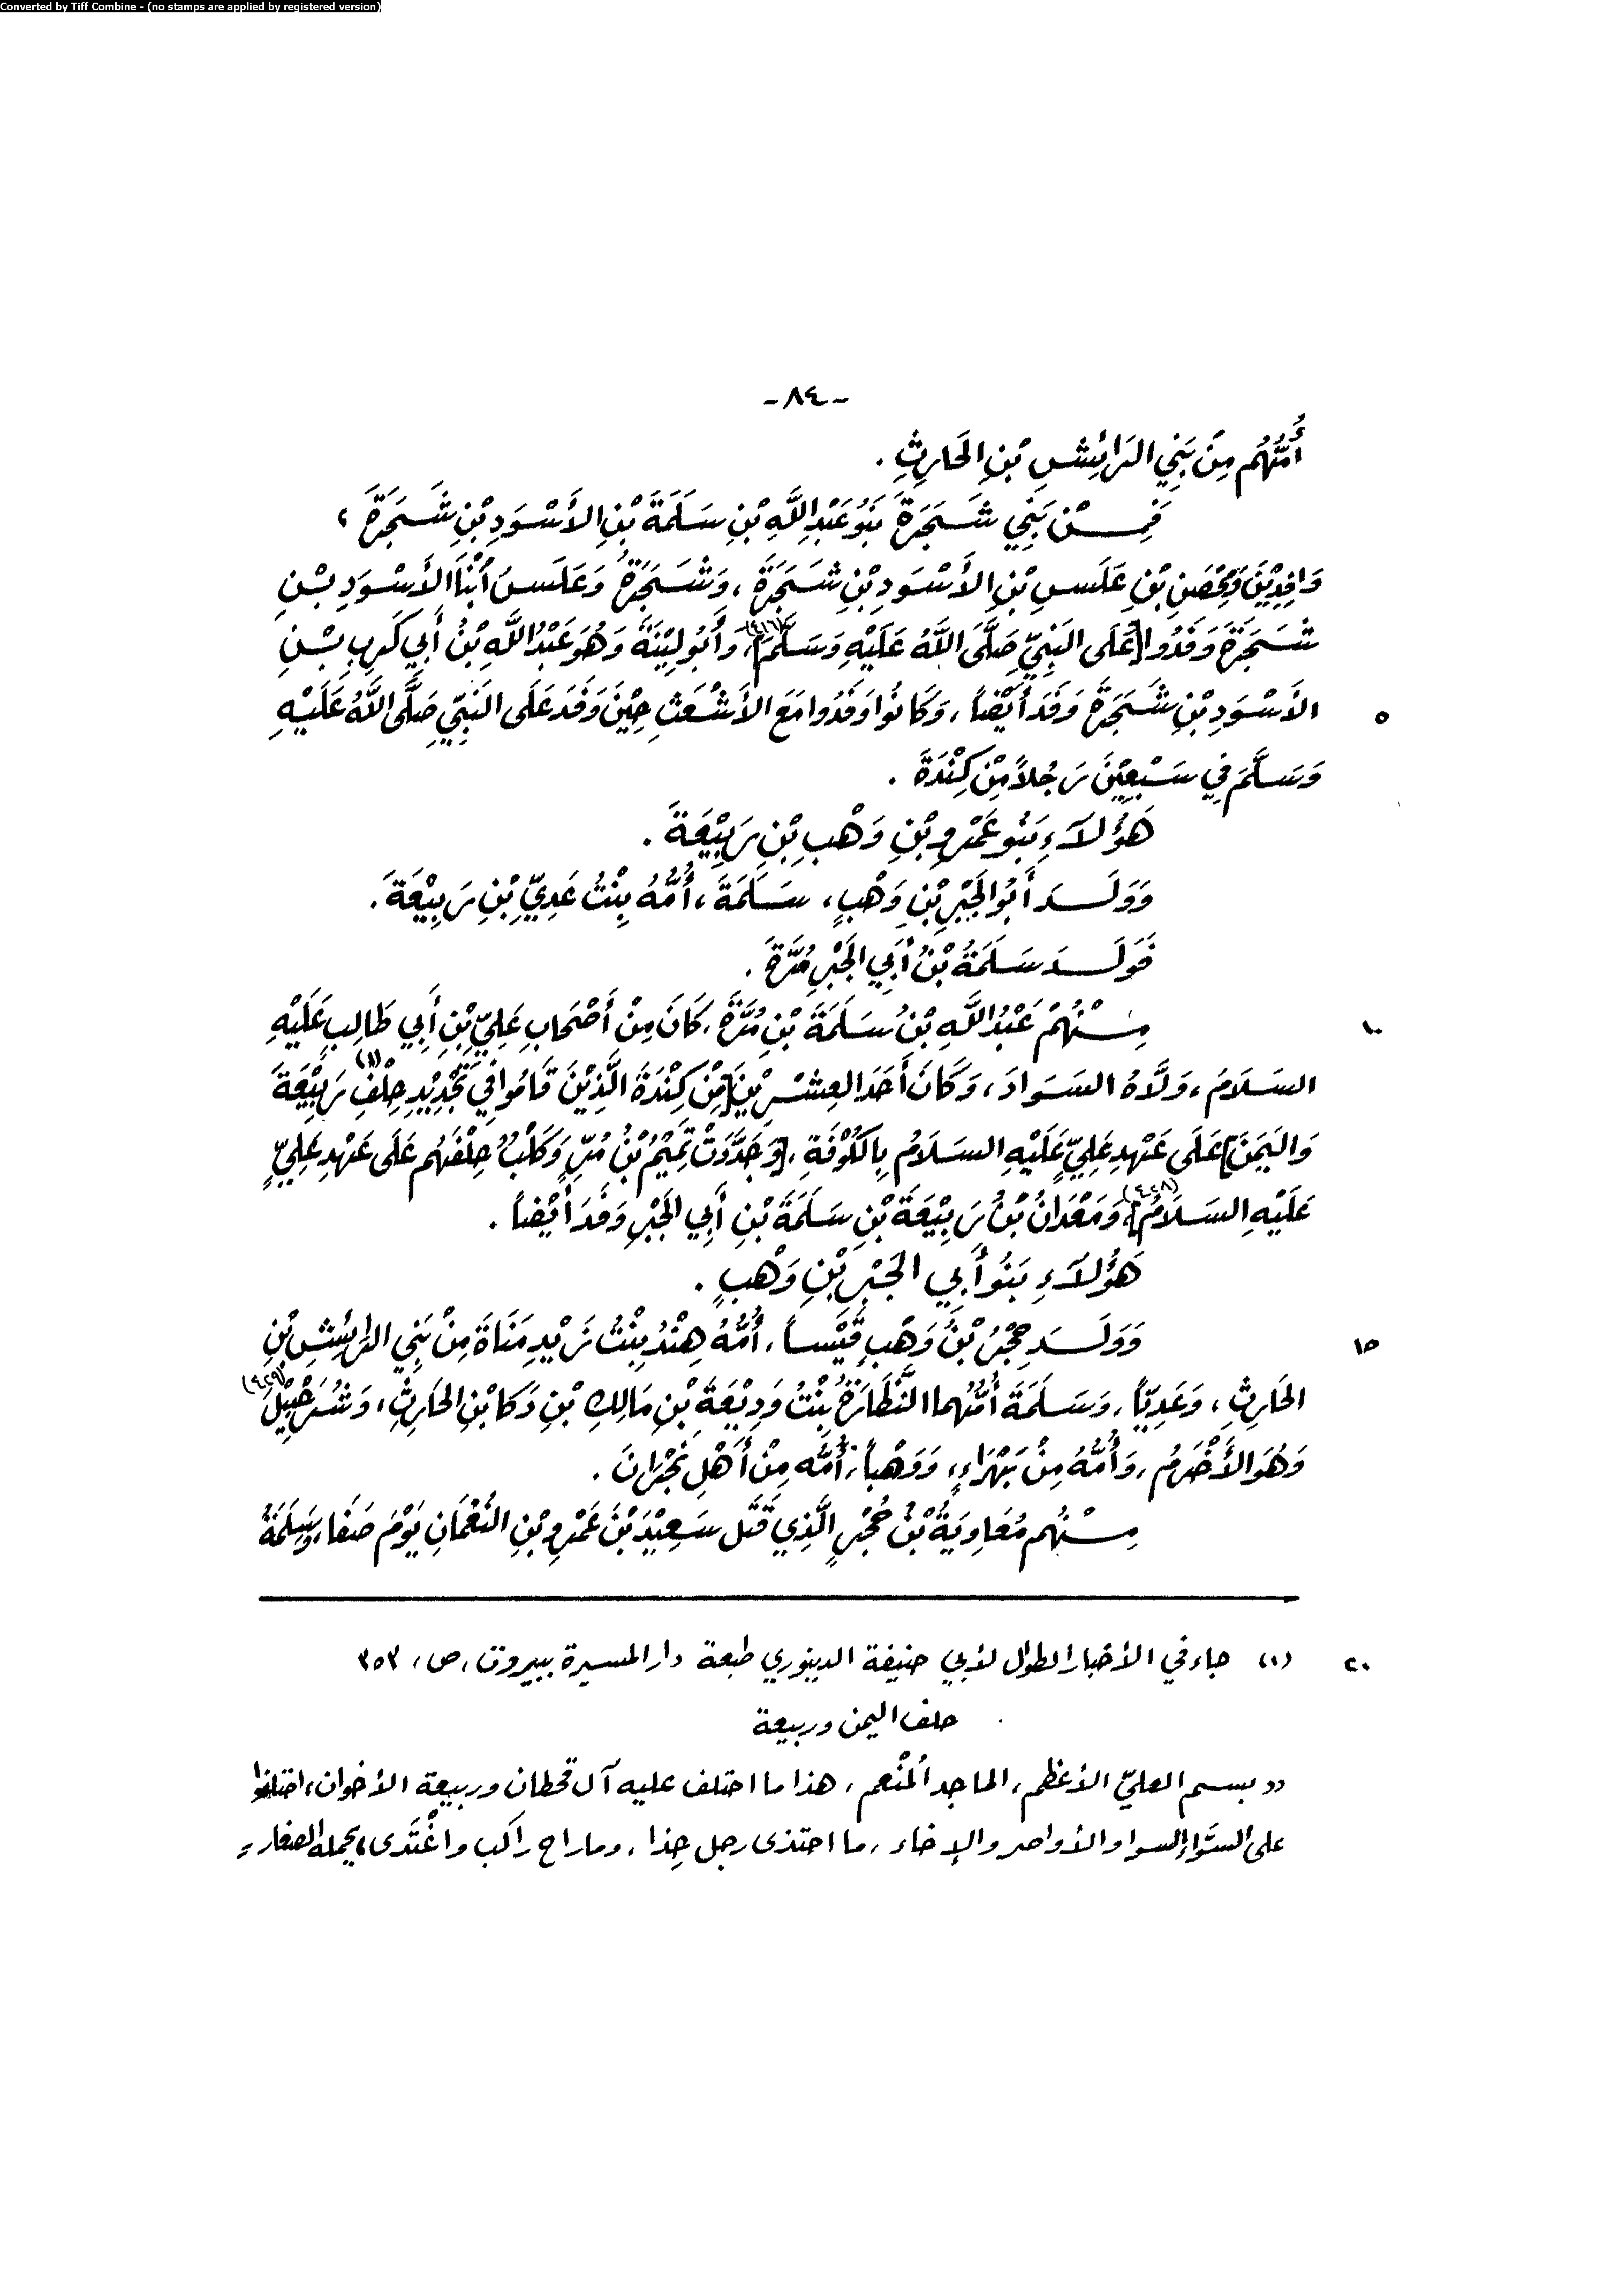 Converted by Tiff Combine - (no stamps are applied by registered version)
-٨٤-
أُمُّهُم مِنْ بَنِي الرَائِشِ بْنِ الحَارِثِ .
فَمِـنْ بَنِي شَجَرَةَ بَنُو عَبْدِ اللَّهِ بْنِ سَلَمَةَ بْنِ الأَسْوَدِ بْنِ شَجَرَةَ ،
وَافِدِيْنَ وَمِحْصَنِ بْنِ عَلَسِ بْنِ الأَسْوَدِ بْنِ شَجَرَةَ ، وَشَجَرَةُ وَعَلَسَ ابْنَا الأَسْوَدِ بْنِ
شَجَرَةَ وَفَدُوا [عَلَى النَبِيِّ صَلَّى اللَّهُ عَلَيْهِ وَسَلَّمَ] ، وَأَبُو لِيْنَةَ وَهُوَ عَبْدُ اللَّهِ بْنُ أَبِي كَرِبِ بْنِ
الأَسْوَدِ بْنِ شَجَرَةَ وَفَدَ أَيْضاً ، وَكَانُوا وَفَدُوا مَعَ الأَشْعَثِ حِيْنَ وَفَدَ عَلَى النَبِيِّ صَلَّى اللَّهُ عَلَيْهِ ٥
وَسَلَّمَ فِي سَبْعِيْنَ رَجُلاً مِنْ كِنْدَةَ .
هَؤُلاَءِ بَنُو عَمْرِو بْنِ وَهْبِ بْنِ رَبِيْعَةَ .
وَوَلَـدَ أَبُو الجَبْرِ بْنِ وَهْبٍ ، سَلَمَةَ ، أُمُّهُ بِنْتُ عَدِيِّ بْنِ رَبِيْعَةَ .
فَوَلَـدَ سَلَمَةُ بْنُ أَبِي الجَبْرِ مُرَّةَ .
مِـنْهُمْ عَبْدُ اللَّهِ بْنُ سَلَمَةَ بْنِ مُرَّةَ ، كَانَ مِنْ أَصْحَابِ عَلِيِّ بْنِ أَبِي طَالِبٍ عَلَيْهِ ١٠
السَلاَمُ ، وَلاَّهُ السَوَادَ ، وَكَانَ أَحَدَ العِشْرِيْنَ [مِنْ كِنْدَةَ الَّذِيْنَ قَامُوا فِي تَجْدِيْدِ حِلْفِ (١) رَبِيْعَةَ
وَاليَمَنَ] عَلَى عَهْدِ عَلِيٍّ عَلَيْهِ السَلاَمُ بِالكُوْفَةِ ، [وَجَدَّدَتْ تَمِيْمُ بْنُ مُرٍّ وَكَلْبُ حِلْفَهُم عَلَى عَهْدِ عَلِيٍّ
عَلَيْهِ السَلاَمُ] (٤٢٨) وَمَعْدَانُ بْنُ رَبِيْعَةَ بْنِ سَلَمَةَ بْنِ أَبِي الجَبْرِ وَفَدَ أَيْضاً .
هَؤُلاَءِ بَنُو أَبِي الجَبْرِ بْنِ وَهْبٍ .
وَوَلَـدَ حِجْرُ بْنُ وَهْبٍ قَيْساً ، أُمُّهُ هِنْدُ بِنْتُ زَيْدِ مَنَاةَ مِنْ بَنِي الرَائِشِ بْنِ ١٥
الحَارِثِ ، وَعَدِيّاً ، وَسَلَمَةَ أُمُّهُما النَّظَارَةُ بِنْتُ وَدِيْعَةَ بْنِ مَالِكِ بْنِ دَكَا بْنِ الحَارِثِ ، وَشُرَحْبِيْلَ (٤٢٩)
وَهُوَ الأَخْرَمُ ، وَأُمُّهُ مِنْ بَهْرَاءٍ ، وَوَهْباً ، أُمُّه مِنْ أَهْلِ نَجْرَانَ .
مِـنْهُم مُعَاوِيَةُ بْنُ حُجْرٍ الَّذِي قَتَل سَعِيْدَ بْنَ عَمْرِو بْنِ النُعْمَانِ يَوْمَ صَنْعَا ، وَسَلَمَةُ
(١) جاء في الأخبار الطوال لأبي حنيفة الدينوري طبعة دار المسيرة ببيروت ، ص ، ٣٥٣ ٢٠
حلف اليمن وربيعة
« بسم العليّ الأعظم ، الماجد المُنْعم ، هذا ما احتلف عليه آل قحطان وربيعة الأخوان ، احتلفوا
على السَّوَاءِ السوا والأواصر والإخاء ، ما احتذى رجل حِذا ، وما راح راكب واغْتَدى ، يحمله الصغار =